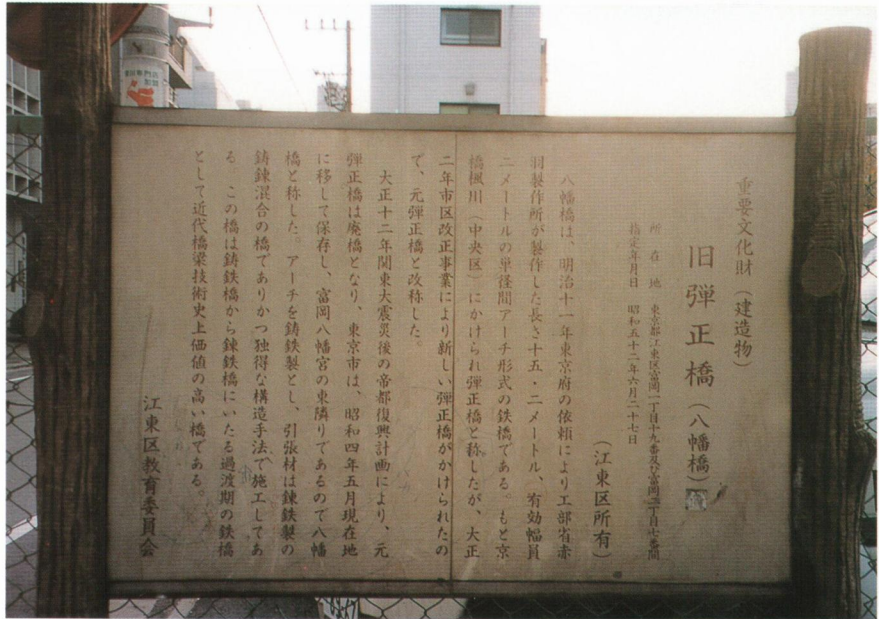 重要文化財（建造物）
旧弾正橋（八幡橋）
所在地　東京都江東区富岡一丁目十九番及び富岡二丁目七番間
指定年月日　昭和五十二年六月二十七日
（江東区所有）
八幡橋は、明治十一年東京府の依頼により工部省赤
羽製作所が製作した長さ十五・二メートル、有効幅員
二メートルの単径間アーチ形式の鉄橋である。もと京
橋楓川（中央区）にかけられ弾正橋と称したが、大正
二年市区改正事業により新しい弾正橋がかけられたの
で、元弾正橋と改称した。
大正十二年関東大震災後の帝都復興計画により、元
弾正橋は廃橋となり、東京市は、昭和四年五月現在地
に移して保存し、富岡八幡宮の東隣りであるので八幡
橋と称した。アーチを鋳鉄製とし、引張材は錬鉄製の
鋳錬混合の橋でありかつ独得な構造手法で施工してあ
る。この橋は鋳鉄橋から錬鉄橋にいたる過渡期の鉄橋
として近代橋梁技術史上価値の高い橋である。
江東区教育委員会